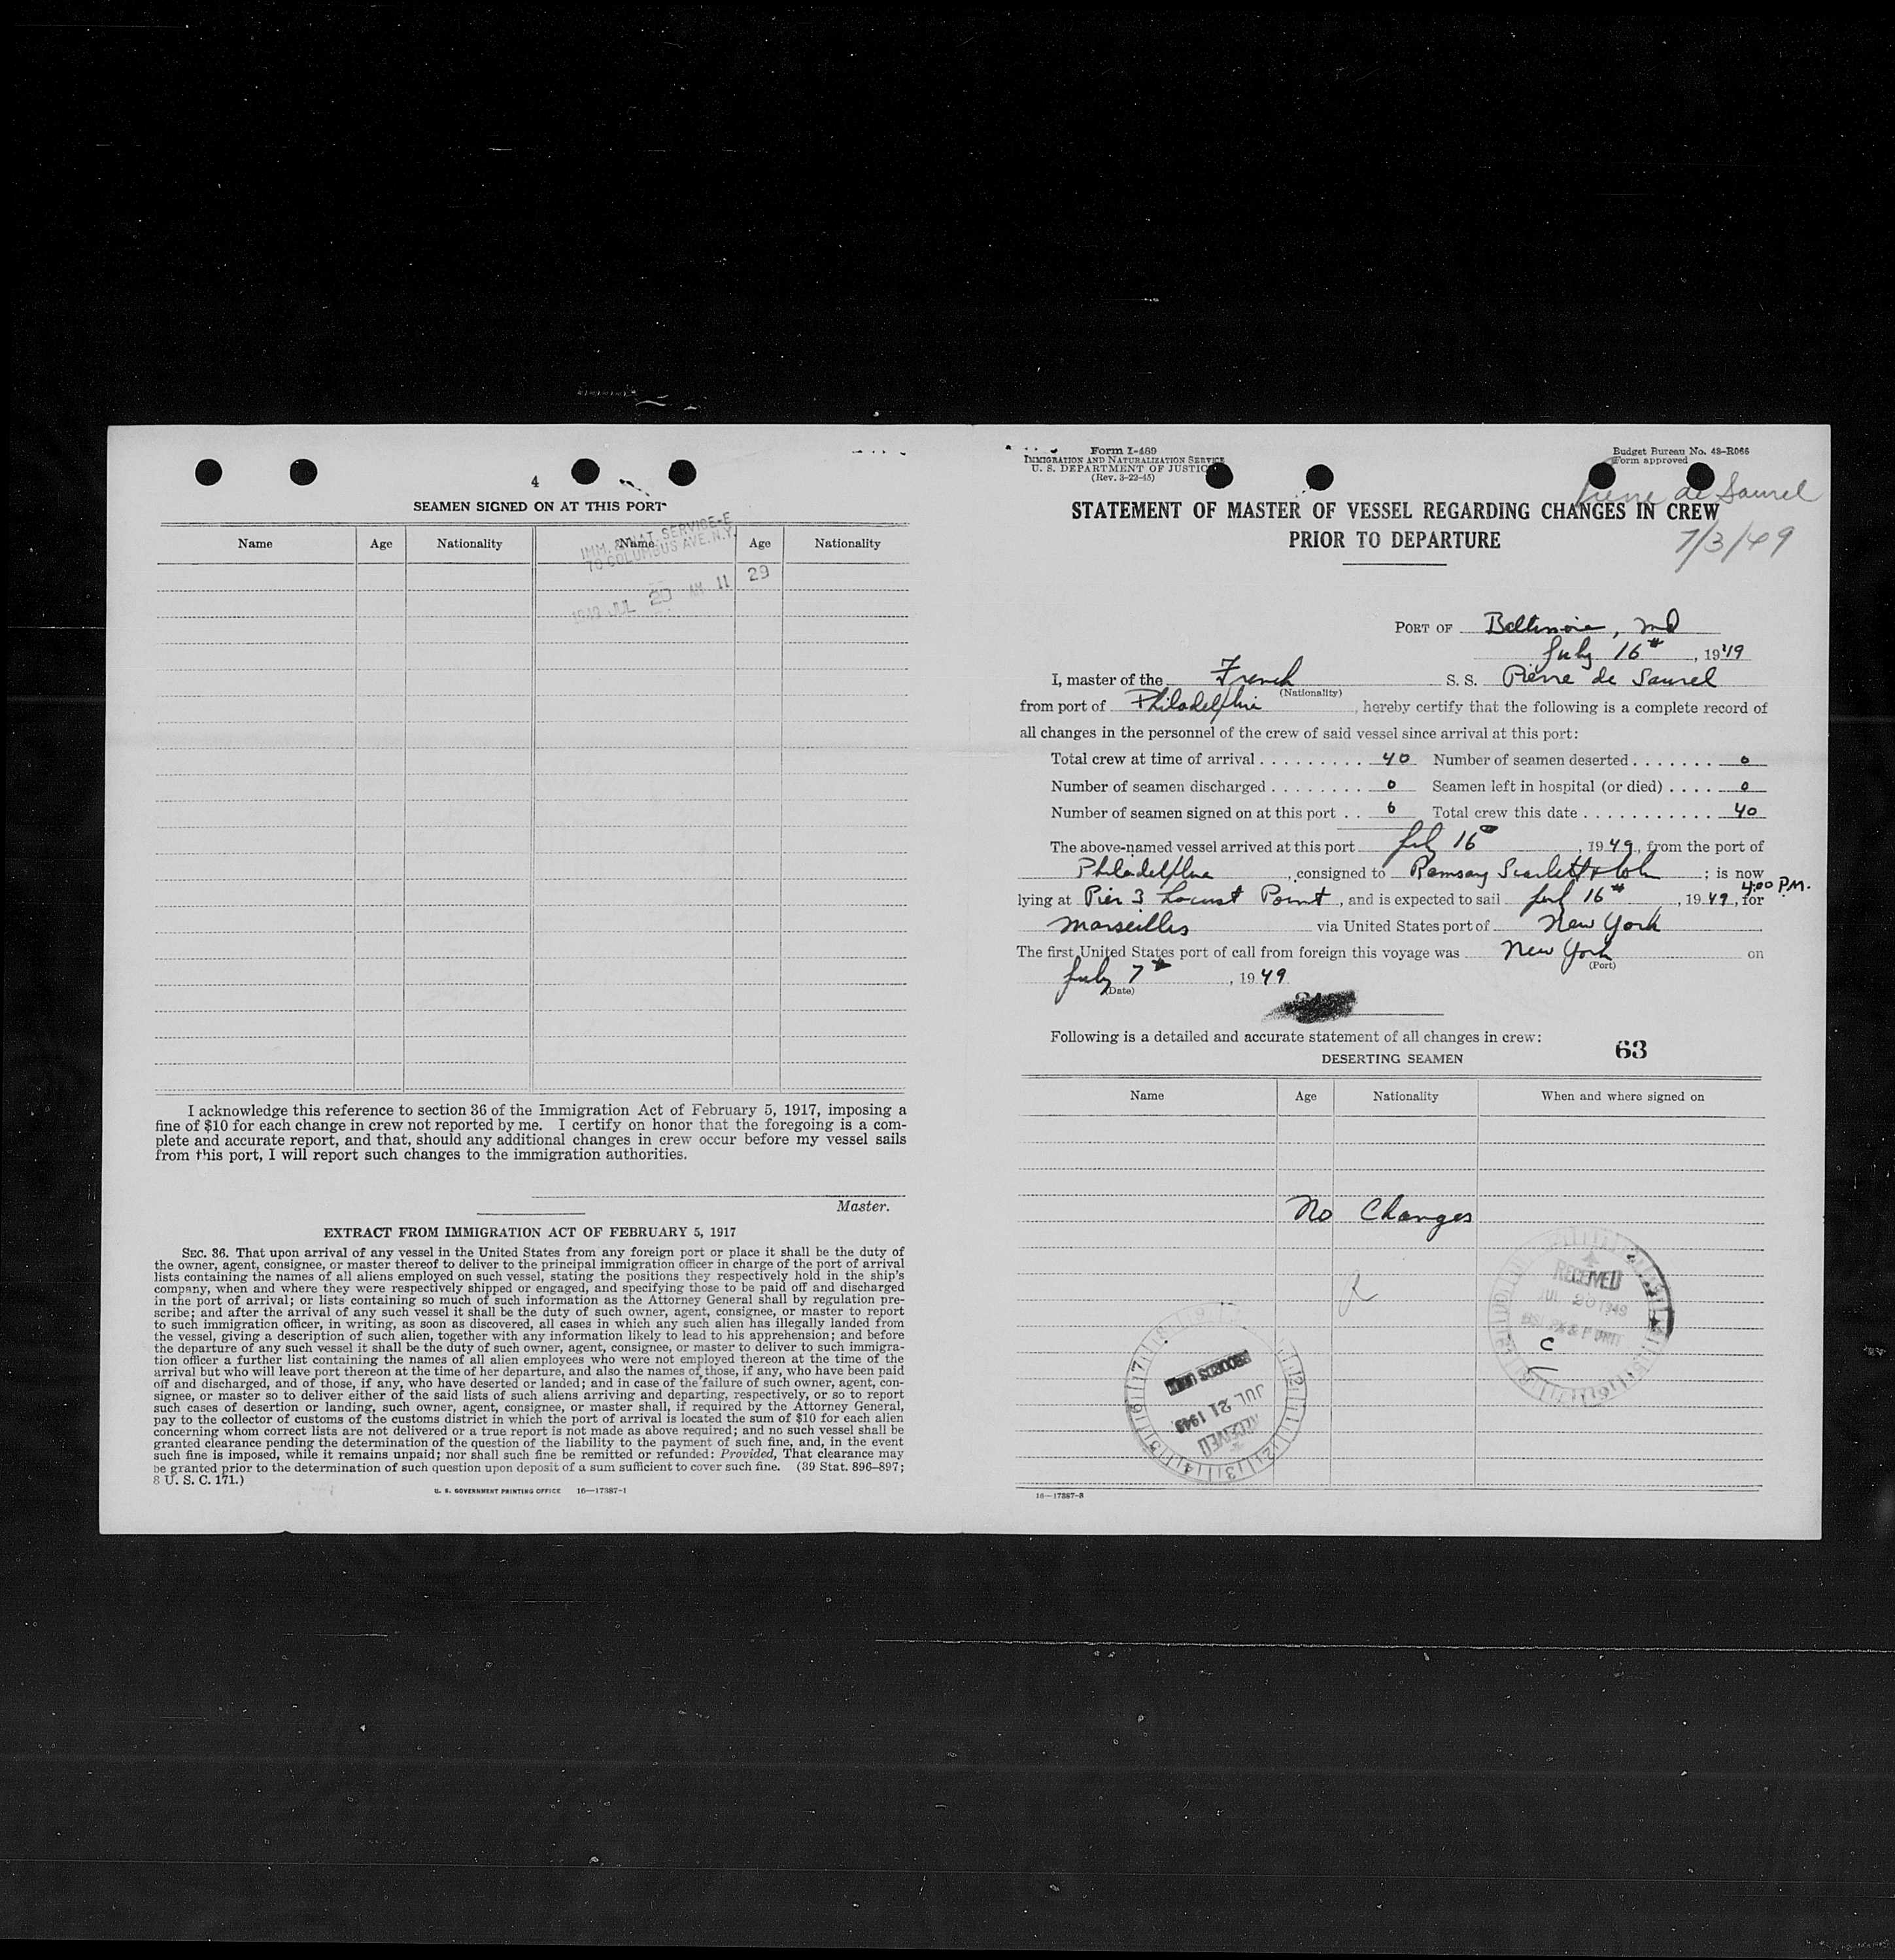 4
SEAMEN SIGNED ON AT THIS PORT
Name Age Nationality Name Age Nationality
IMM. & NAT. SERVICE-E
70 COLUMBUS AVE. N.Y.
1949 JUL 20 AM 11 29
I acknowledge this reference to section 36 of the Immigration Act of February 5, 1917, imposing a
fine of $10 for each change in crew not reported by me. I certify on honor that the foregoing is a com-
plete and accurate report, and that, should any additional changes in crew occur before my vessel sails
from this port, I will report such changes to the immigration authorities.
Master.
EXTRACT FROM IMMIGRATION ACT OF FEBRUARY 5, 1917
SEC. 36. That upon arrival of any vessel in the United States from any foreign port or place it shall be the duty of
the owner, agent, consignee, or master thereof to deliver to the principal immigration officer in charge of the port of arrival
lists containing the names of all aliens employed on such vessel, stating the positions they respectively hold in the ship's
company, when and where they were respectively shipped or engaged, and specifying those to be paid off and discharged
in the port of arrival; or lists containing so much of such information as the Attorney General shall by regulation pre-
scribe; and after the arrival of any such vessel it shall be the duty of such owner, agent, consignee, or master to report
to such immigration officer, in writing, as soon as discovered, all cases in which any such alien has illegally landed from
the vessel, giving a description of such alien, together with any information likely to lead to his apprehension; and before
the departure of any such vessel it shall be the duty of such owner, agent, consignee, or master to deliver to such immigra-
tion officer a further list containing the names of all alien employees who were not employed thereon at the time of the
arrival but who will leave port thereon at the time of her departure, and also the names of those, if any, who have been paid
off and discharged, and of those, if any, who have deserted or landed; and in case of the failure of such owner, agent, con-
signee, or master so to deliver either of the said lists of such aliens arriving and departing, respectively, or so to report
such cases of desertion or landing, such owner, agent, consignee, or master shall, if required by the Attorney General,
pay to the collector of customs of the customs district in which the port of arrival is located the sum of $10 for each alien
concerning whom correct lists are not delivered or a true report is not made as above required; and no such vessel shall be
granted clearance pending the determination of the question of the liability to the payment of such fine, and, in the event
such fine is imposed, while it remains unpaid; nor shall such fine be remitted or refunded: Provided, That clearance may
be granted prior to the determination of such question upon deposit of a sum sufficient to cover such fine. (39 Stat. 896-897;
8 U. S. C. 171.)
U. S. GOVERNMENT PRINTING OFFICE 16—17387-1
Form I-489
IMMIGRATION AND NATURALIZATION SERVICE
U. S. DEPARTMENT OF JUSTICE
(Rev. 3-22-45)
Budget Bureau No. 43-R066
Form approved
Pierre de Saurel
7/3/49
STATEMENT OF MASTER OF VESSEL REGARDING CHANGES IN CREW
PRIOR TO DEPARTURE
PORT OF Baltimore, Md
July 16th, 1949
I, master of the French S. S. Pierre de Saurel
(Nationality)
from port of Philadelphia, hereby certify that the following is a complete record of
all changes in the personnel of the crew of said vessel since arrival at this port:
Total crew at time of arrival 40 Number of seamen deserted 0
Number of seamen discharged 0 Seamen left in hospital (or died) 0
Number of seamen signed on at this port 0 Total crew this date 40
The above-named vessel arrived at this port July 16, 1949, from the port of
Philadelphia, consigned to Ramsay Scarlett & Coh; is now
lying at Pier 3 Locust Point, and is expected to sail July 16th, 1949, for 4:00 P.M.
Marseilles via United States port of New York
The first United States port of call from foreign this voyage was New York on
(Port)
July 7th, 1949
(Date)
Following is a detailed and accurate statement of all changes in crew:
63
DESERTING SEAMEN
Name Age Nationality When and where signed on
No Changes
RECEIVED
JUL 20 1949
C
RECORDS UNIT
JUL 21 1949
RECEIVED
16—17387-2